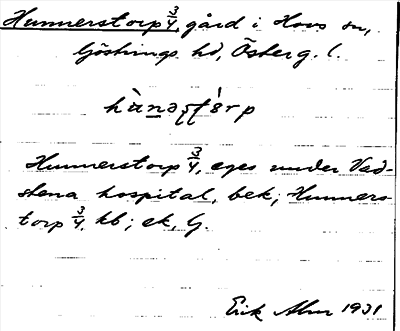 Hunnerstorp 3/4, gård i Hovs sn,
Göstrings hd, Österg. l.
Hunnerstorp 3/4, eges under Vad-
stena hospital, bek; Hunners-
torp 3/4 kb; ek, G.
Erik Alm 1931